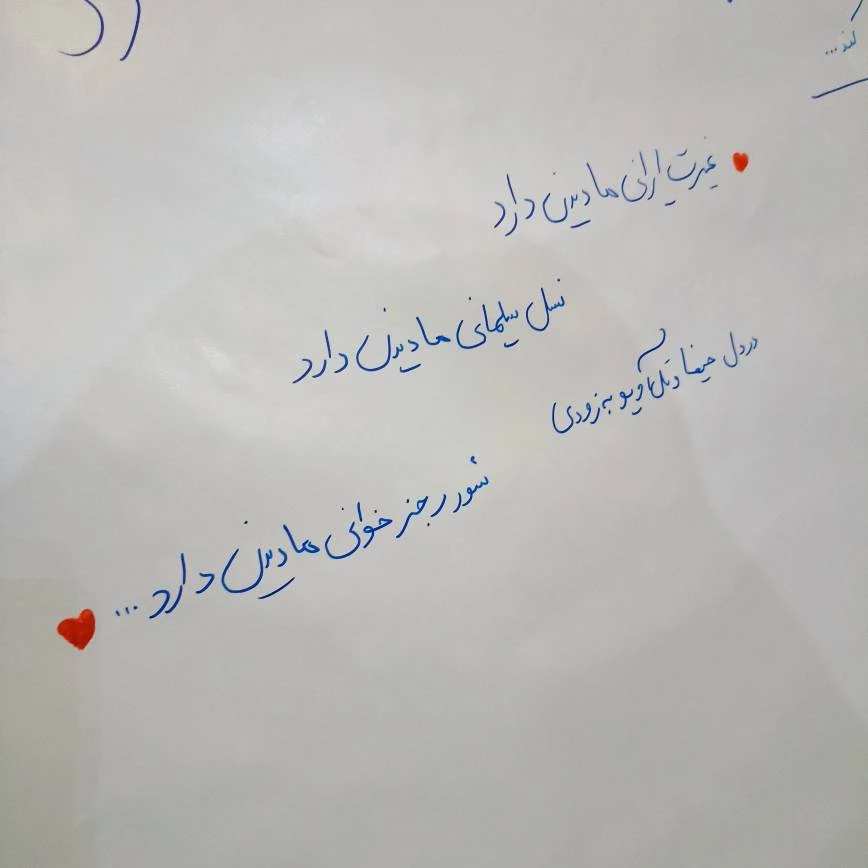 کند...
غیرت ایرانی ما دیدن دارد
نسل سلیمانی ما دیدن دارد
در دل حیفا و تل‌آویو به زودی
شور رجز خوانی ما دیدن دارد...